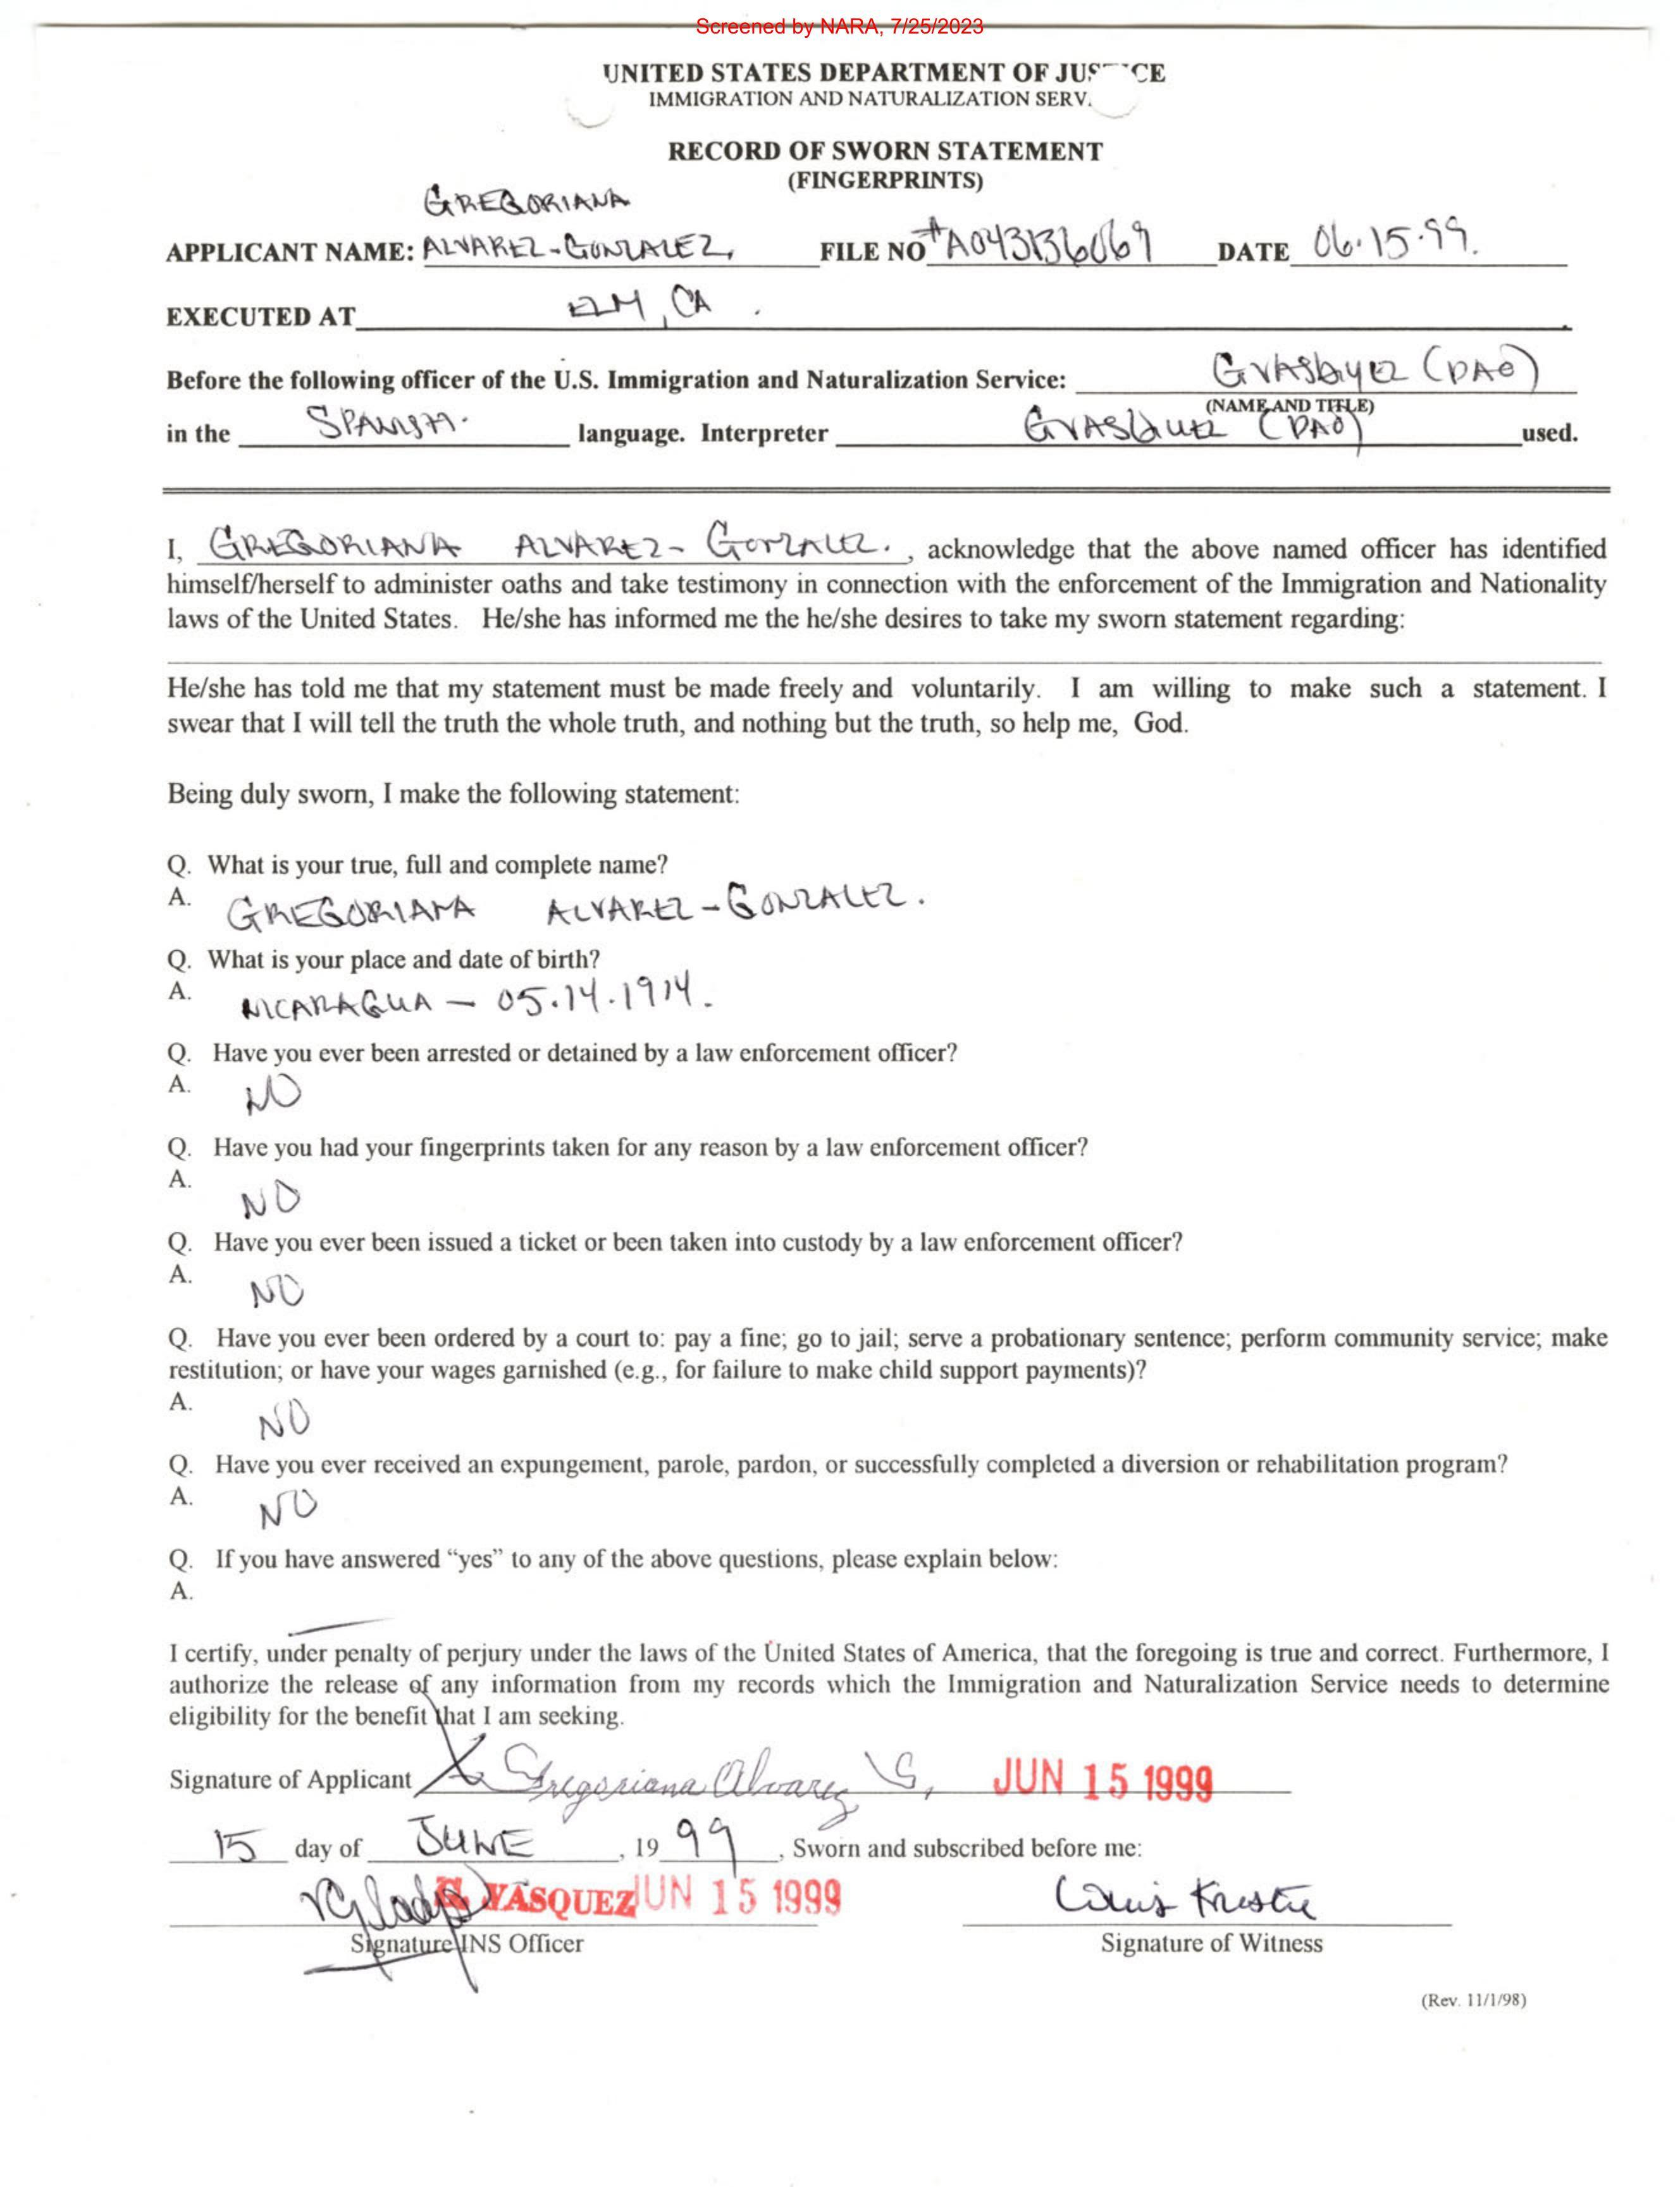 Screened by NARA, 7/25/2023
UNITED STATES DEPARTMENT OF JUS CE
IMMIGRATION AND NATURALIZATION SERV.
RECORD OF SWORN STATEMENT
(FINGERPRINTS)
GREGORIANA
APPLICANT NAME: ALVAREZ-GONZALEZ, FILE NO #A043136069 DATE 06.15.99.
EXECUTED AT ELM, CA.
Before the following officer of the U.S. Immigration and Naturalization Service: GVASQUEZ (DAO)
(NAME AND TITLE)
in the SPANISH. language. Interpreter GVASQUEZ (DAO) used.
I, GREGORIANA ALVAREZ-GONZALEZ., acknowledge that the above named officer has identified
himself/herself to administer oaths and take testimony in connection with the enforcement of the Immigration and Nationality
laws of the United States. He/she has informed me the he/she desires to take my sworn statement regarding:
He/she has told me that my statement must be made freely and voluntarily. I am willing to make such a statement. I
swear that I will tell the truth the whole truth, and nothing but the truth, so help me, God.
Being duly sworn, I make the following statement:
Q. What is your true, full and complete name?
A. GREGORIANA ALVAREZ-GONZALEZ.
Q. What is your place and date of birth?
A. NICARAGUA - 05.14.1914.
Q. Have you ever been arrested or detained by a law enforcement officer?
A. NO
Q. Have you had your fingerprints taken for any reason by a law enforcement officer?
A. NO
Q. Have you ever been issued a ticket or been taken into custody by a law enforcement officer?
A. NO
Q. Have you ever been ordered by a court to: pay a fine; go to jail; serve a probationary sentence; perform community service; make
restitution; or have your wages garnished (e.g., for failure to make child support payments)?
A. NO
Q. Have you ever received an expungement, parole, pardon, or successfully completed a diversion or rehabilitation program?
A. NO
Q. If you have answered “yes” to any of the above questions, please explain below:
A.
I certify, under penalty of perjury under the laws of the United States of America, that the foregoing is true and correct. Furthermore, I
authorize the release of any information from my records which the Immigration and Naturalization Service needs to determine
eligibility for the benefit that I am seeking.
Signature of Applicant X Gregoriana Alvarez G, JUN 15 1999
15 day of JUNE, 1999, Sworn and subscribed before me:
G. VASQUEZ JUN 15 1999
Signature INS Officer Signature of Witness
(Rev. 11/1/98)